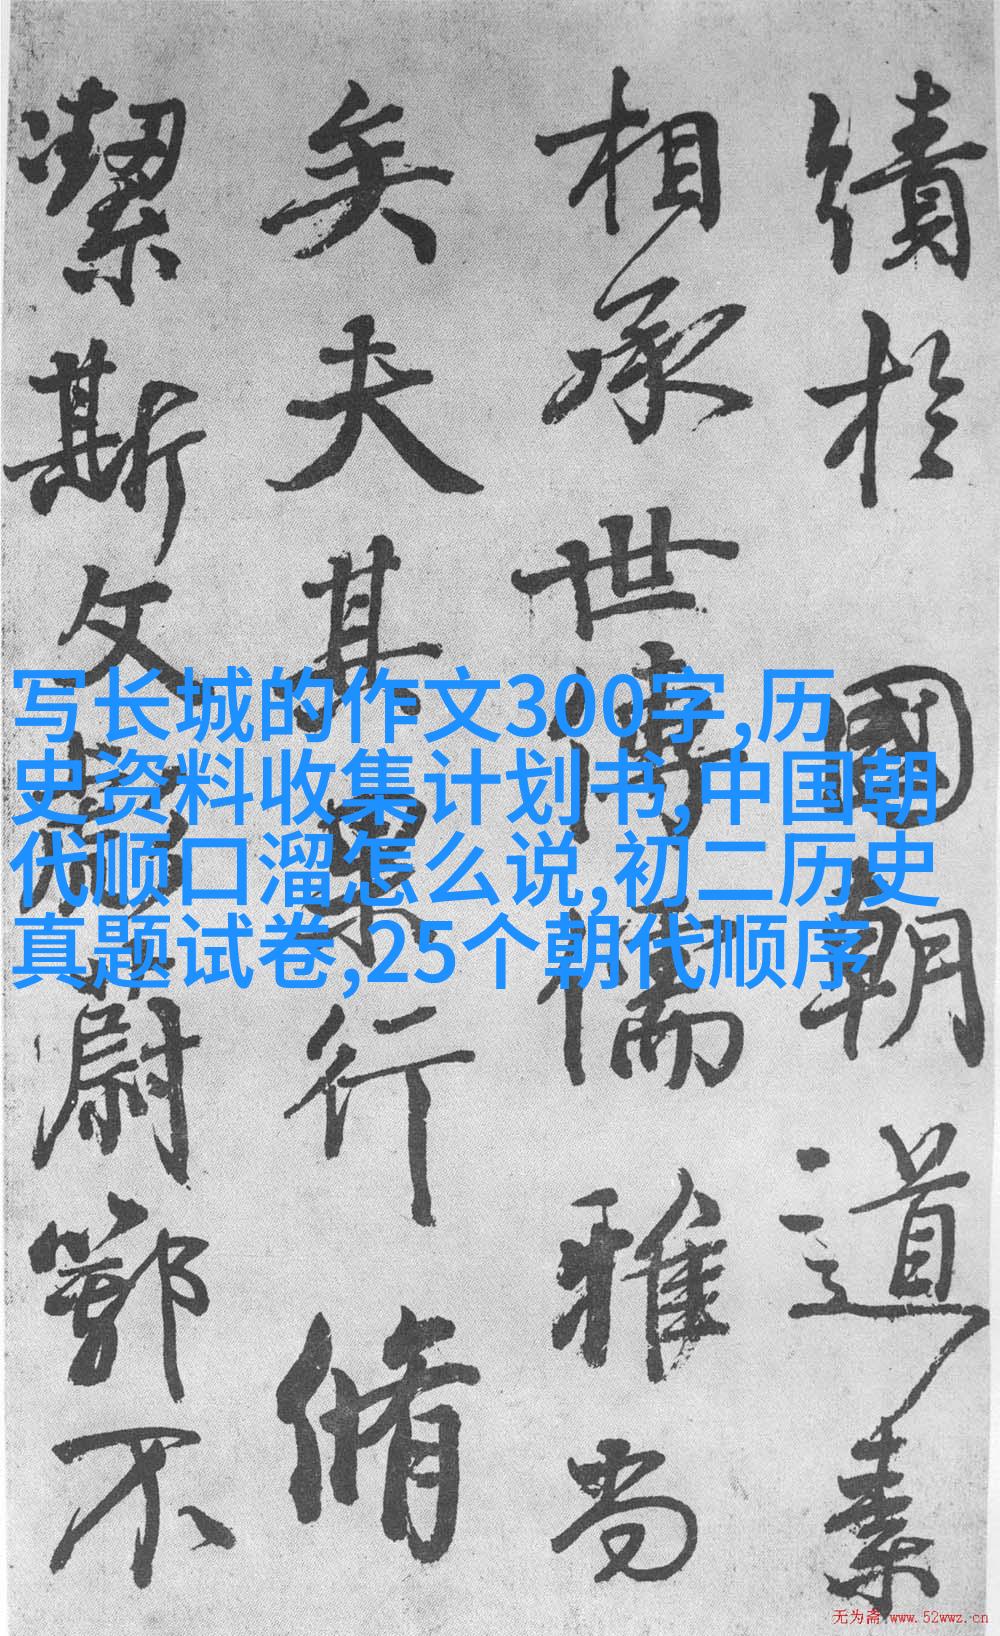 績於國朝道素
相承世傳儒雅尚
矣夫其果行脩
潔斯文蔚鄂不
写长城的作文300字,历
史资料收集计划书,中国朝
代顺口溜怎么说,初二历史
真题试卷,25个朝代顺序
无为斋 www.52wwz.cn